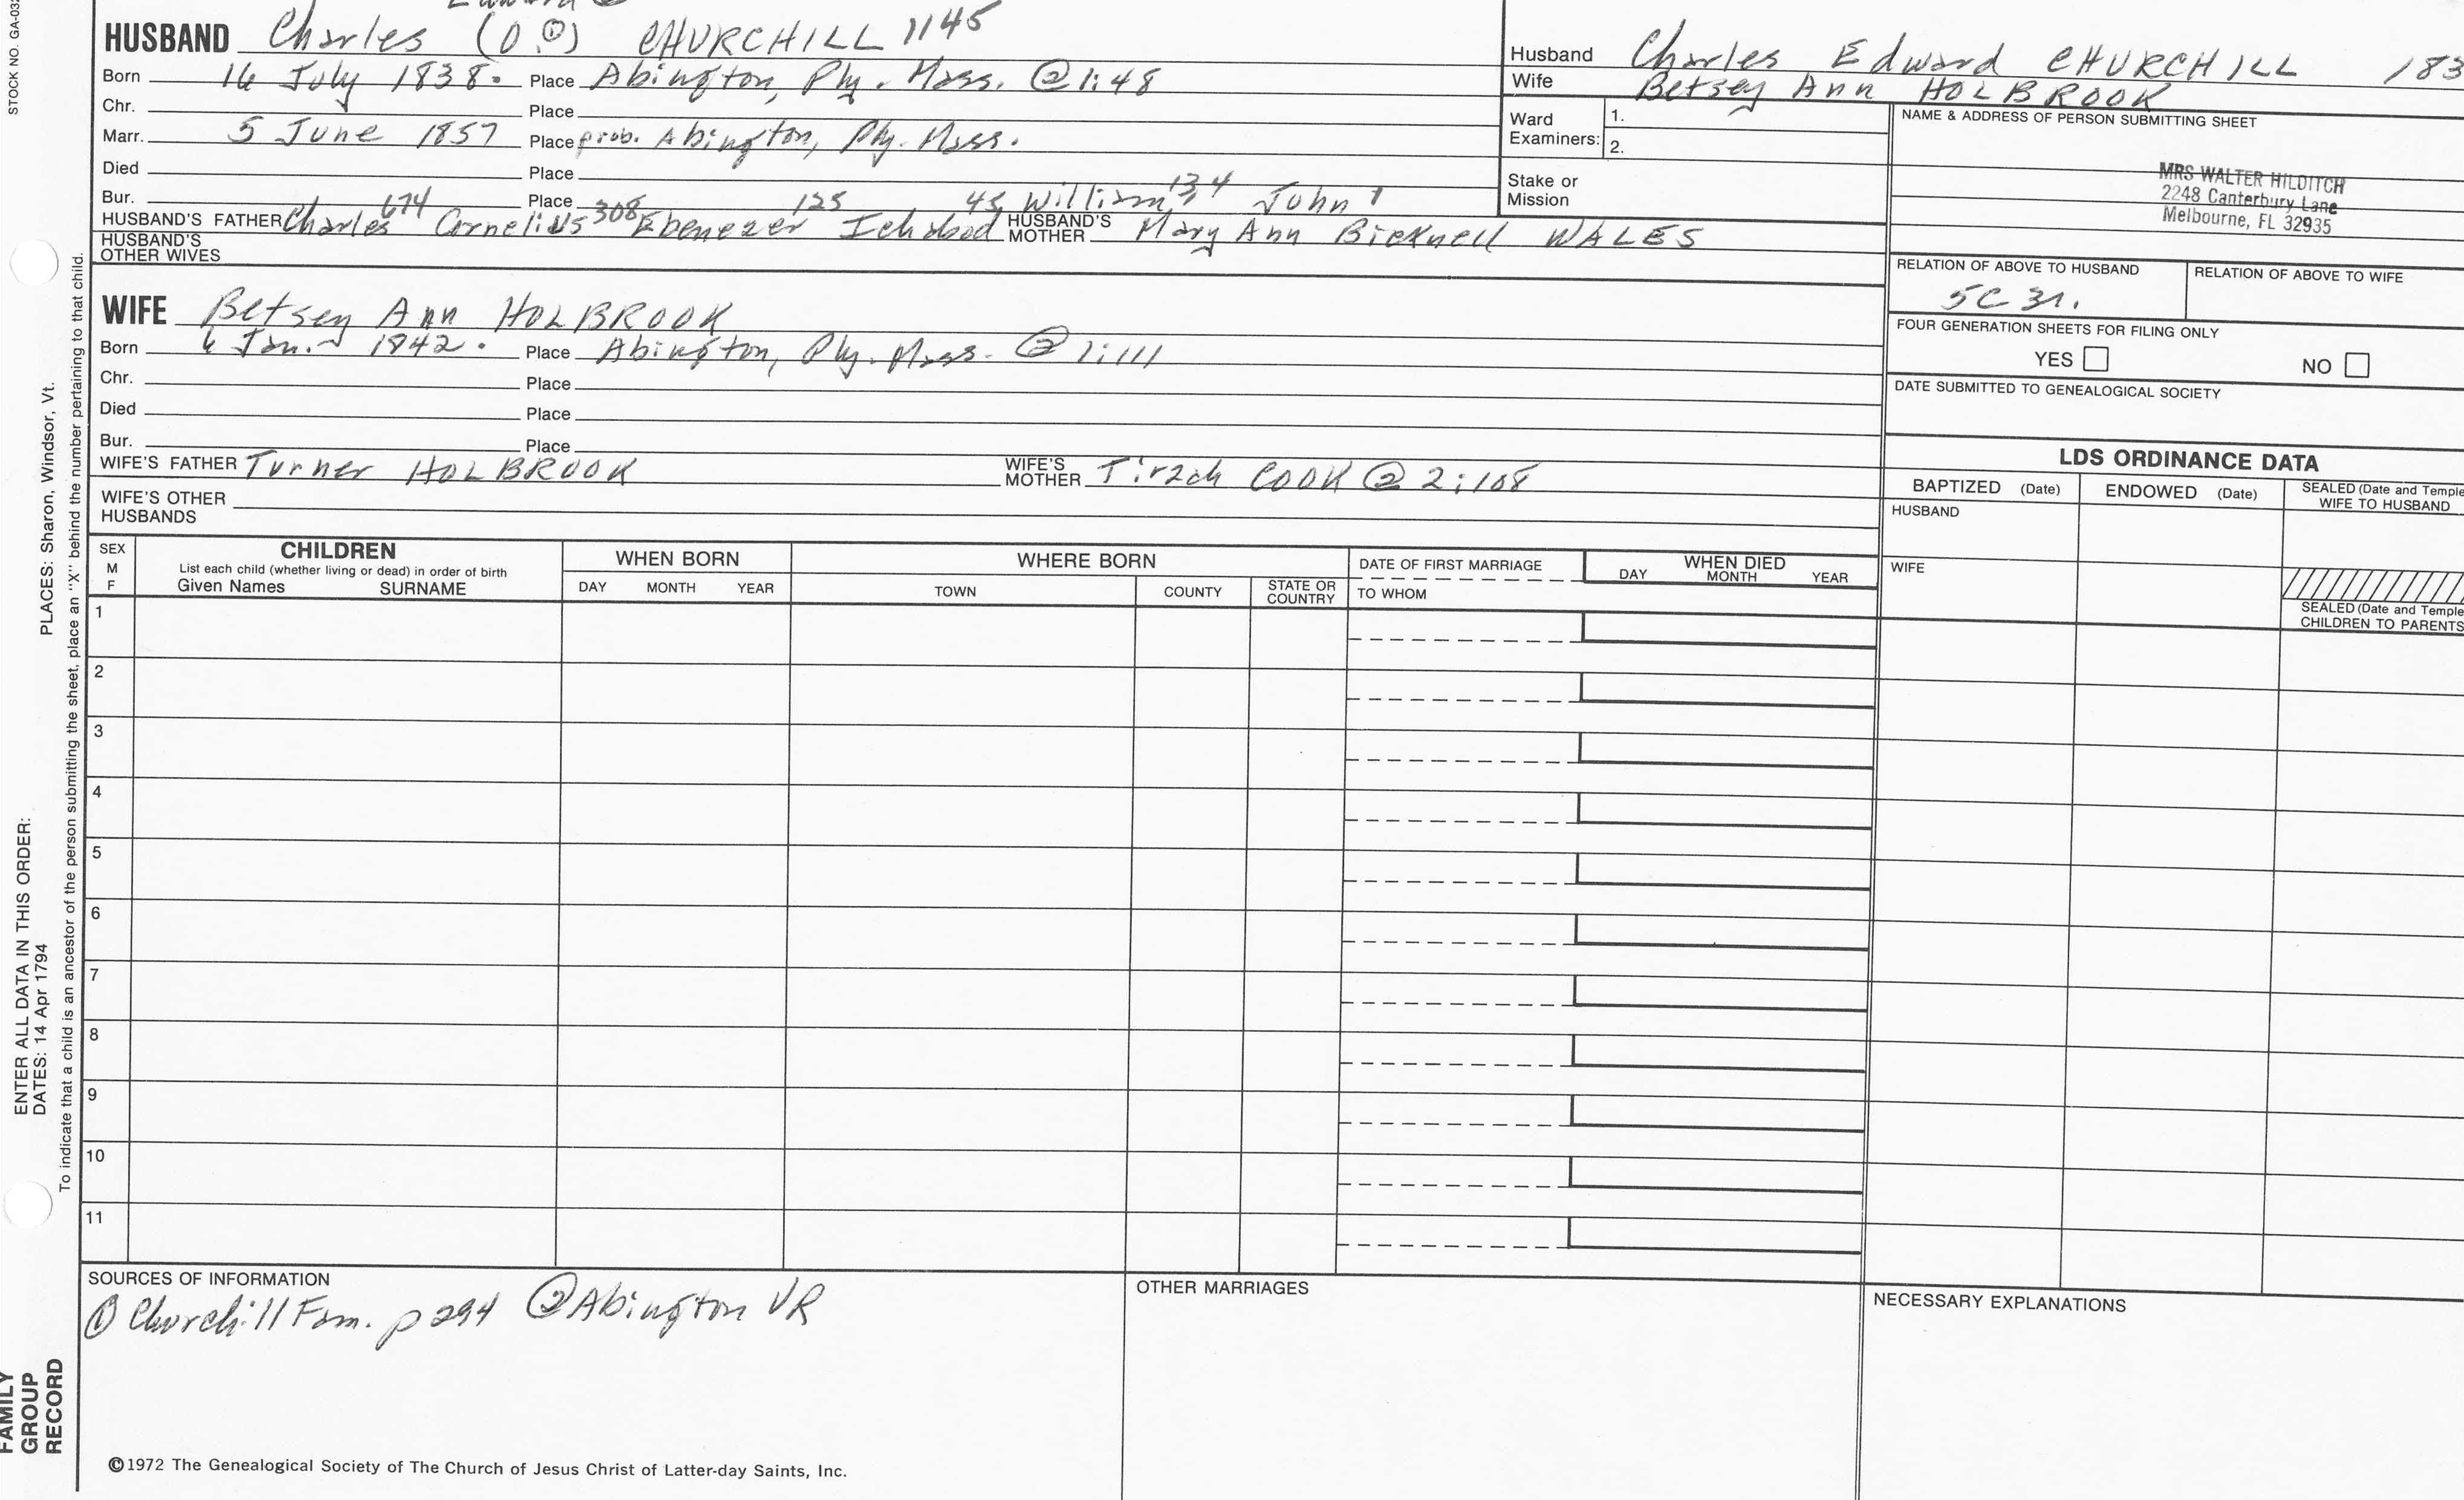 HUSBAND Charles (O.①) CHURCHILL 1145
Born 16 July 1838. Place Abington, Ply. Mass. @1:48
Chr. Place
Marr. 5 June 1857 Place prob. Abington, Ply. Mass.
Died Place
Bur. Place
HUSBAND'S FATHER Charles 674 Cornelius 308 Ebenezer 125 Ichabod 43 William 13,4 John 1 HUSBAND'S MOTHER Mary Ann Bicknell WALES
HUSBAND'S OTHER WIVES
Husband Charles Edward CHURCHILL 183
Wife Betsey Ann HOLBROOK
Ward Examiners: 1.
2.
Stake or Mission
NAME & ADDRESS OF PERSON SUBMITTING SHEET
MRS WALTER HILDITCH
2248 Canterbury Lane
Melbourne, FL 32935
RELATION OF ABOVE TO HUSBAND RELATION OF ABOVE TO WIFE
5C 3r.
FOUR GENERATION SHEETS FOR FILING ONLY
YES NO
DATE SUBMITTED TO GENEALOGICAL SOCIETY
WIFE Betsey Ann HOLBROOK
Born 6 Jan. 1842. Place Abington, Ply. Mass. @1:111
Chr. Place
Died Place
Bur. Place
WIFE'S FATHER Turner HOLBROOK WIFE'S MOTHER Tirzah COOK @2:108
WIFE'S OTHER HUSBANDS
LDS ORDINANCE DATA
BAPTIZED (Date) ENDOWED (Date) SEALED (Date and Temple
WIFE TO HUSBAND
HUSBAND
WIFE
SEALED (Date and Temple
CHILDREN TO PARENTS
SEX M F
CHILDREN
List each child (whether living or dead) in order of birth
Given Names SURNAME
WHEN BORN
DAY MONTH YEAR
WHERE BORN
TOWN COUNTY STATE OR COUNTRY
DATE OF FIRST MARRIAGE
TO WHOM
WHEN DIED
DAY MONTH YEAR
1
2
3
4
5
6
7
8
9
10
11
SOURCES OF INFORMATION
① Churchill Fam. p 294 ② Abington VR
OTHER MARRIAGES
NECESSARY EXPLANATIONS
©1972 The Genealogical Society of The Church of Jesus Christ of Latter-day Saints, Inc.
STOCK NO. GA-03
ENTER ALL DATA IN THIS ORDER:
DATES: 14 Apr 1794
PLACES: Sharon, Windsor, Vt.
To indicate that a child is an ancestor of the person submitting the sheet, place an "X" behind the number pertaining to that child.
FAMILY
GROUP
RECORD